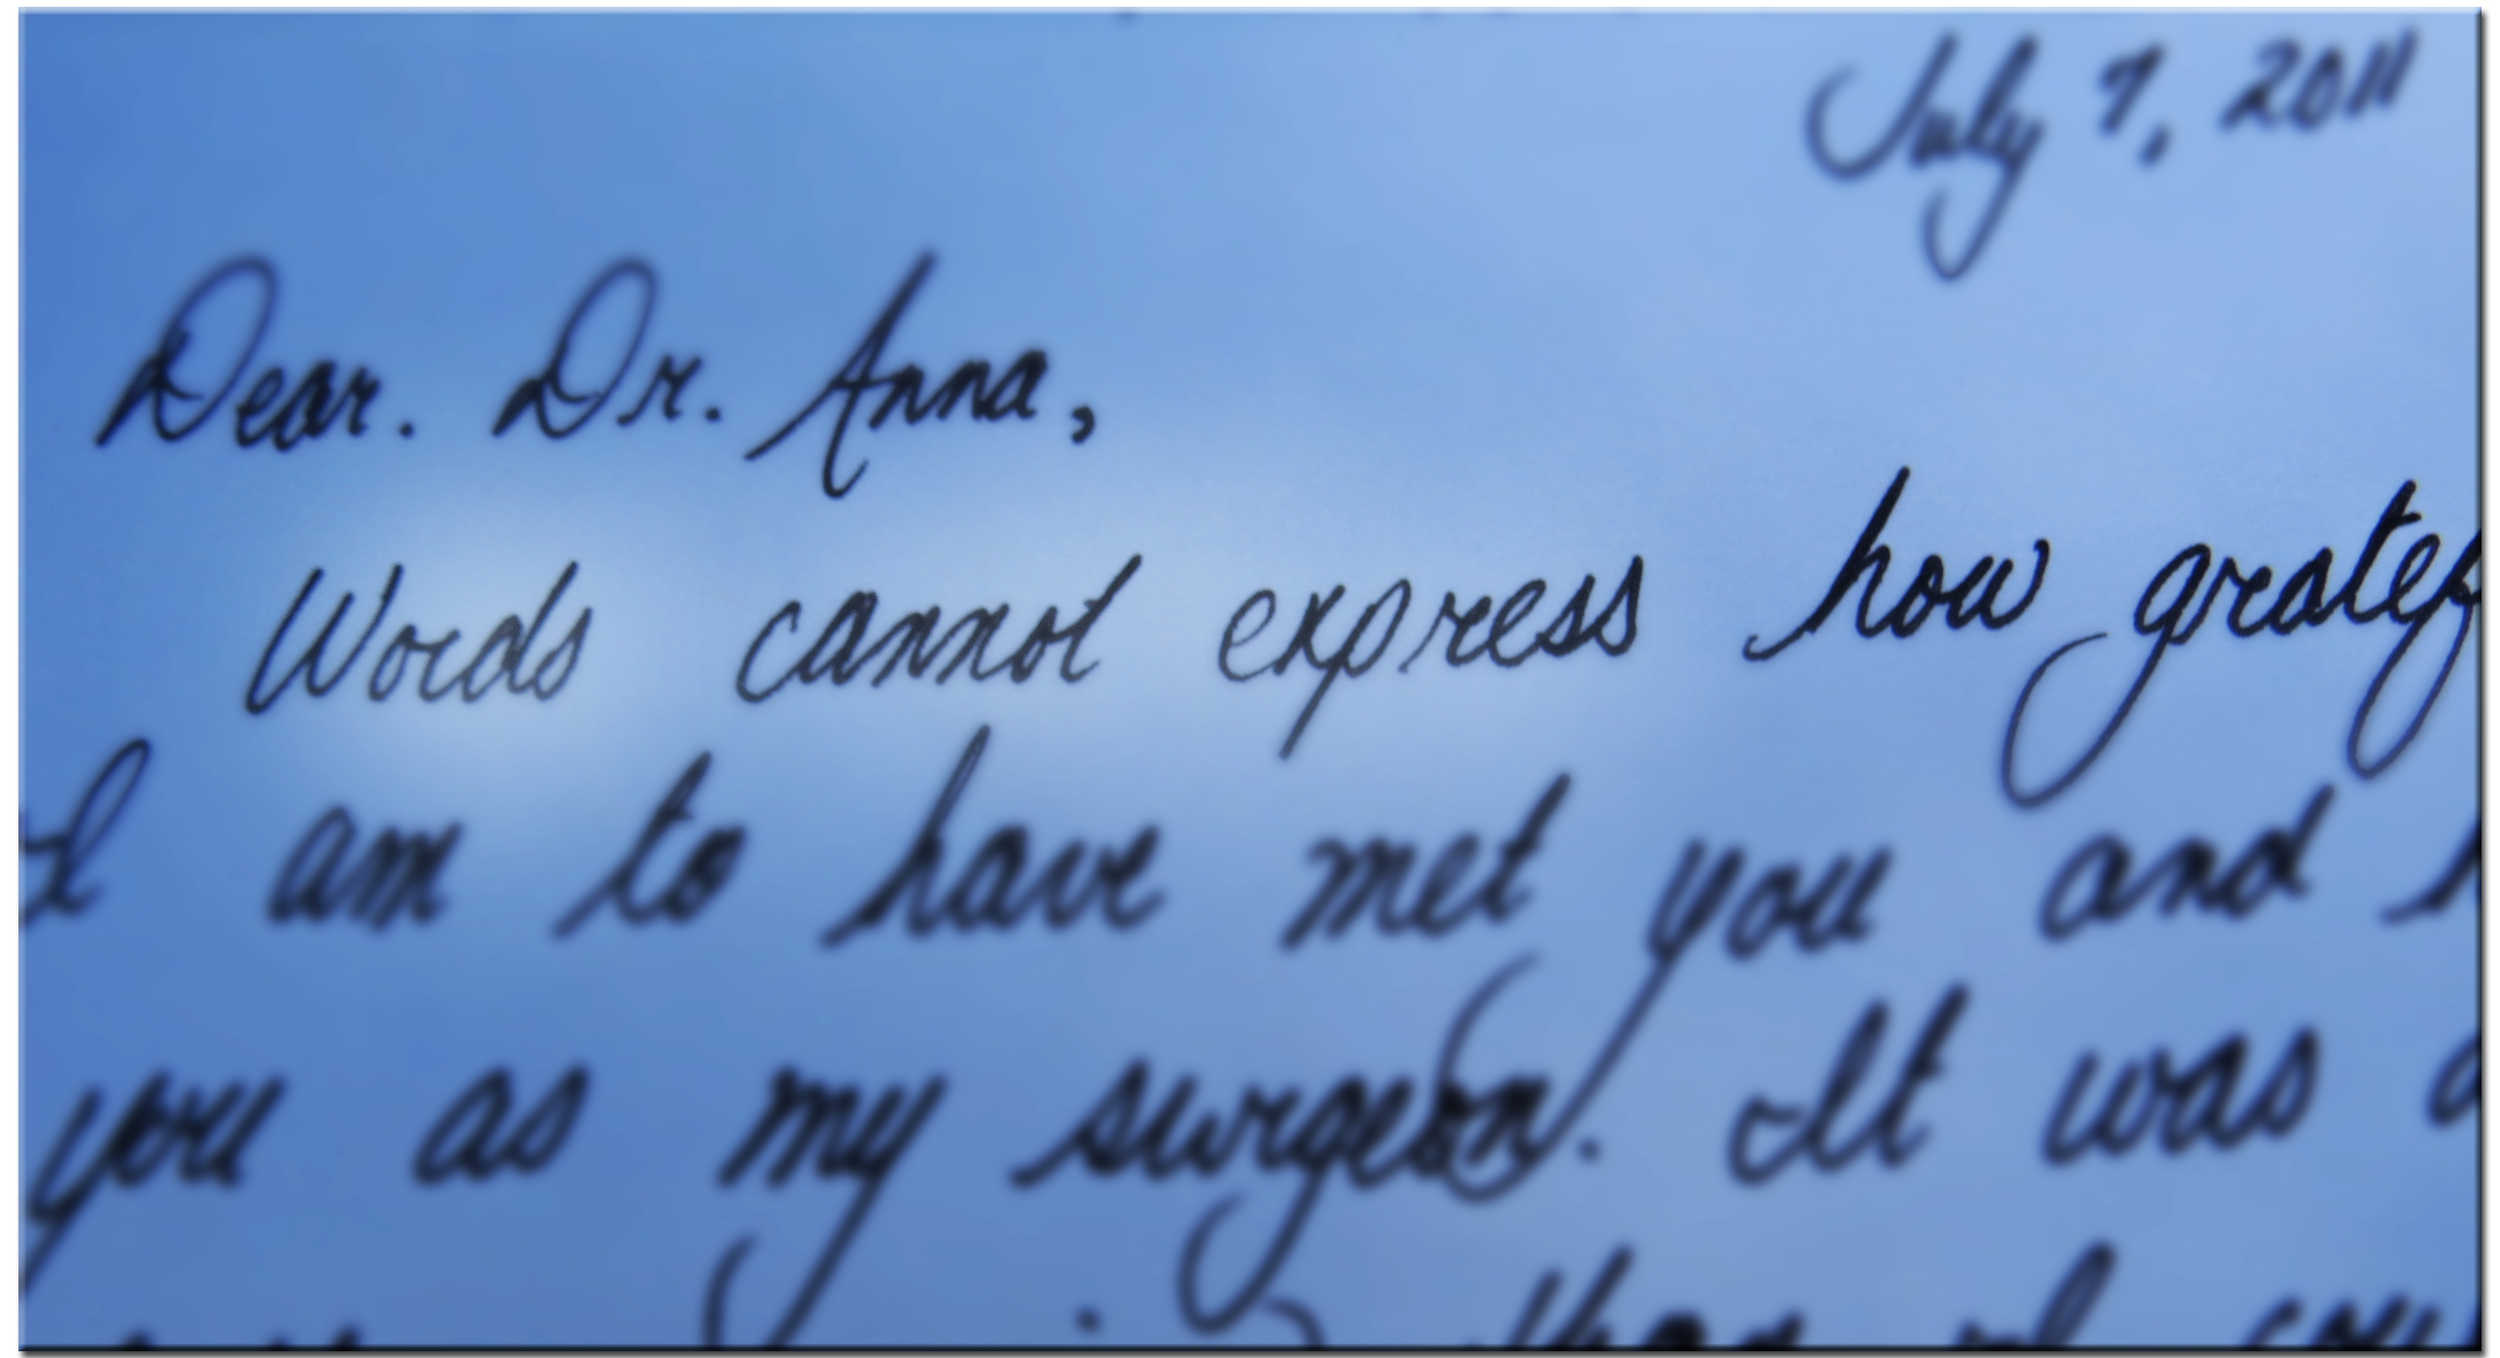 July 7, 2011
Dear. Dr. Anna,
Words cannot express how gratef
I am to have met you and h
you as my surgeon. It was a
than I cou